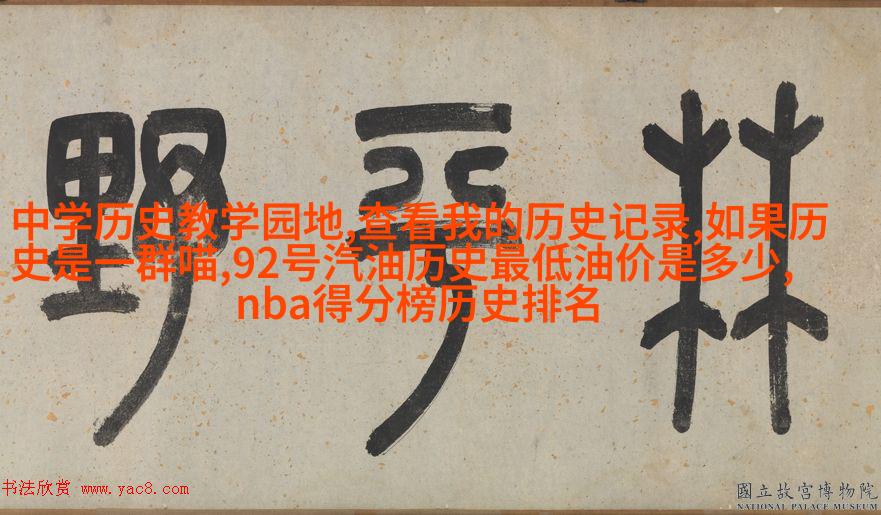 林乎野
中学历史教学园地,查看我的历史记录,如果历
史是一群喵,92号汽油历史最低油价是多少,
nba得分榜历史排名
书法欣赏 www.yac8.com
國立故宮博物院
NATIONAL PALACE MUSEUM